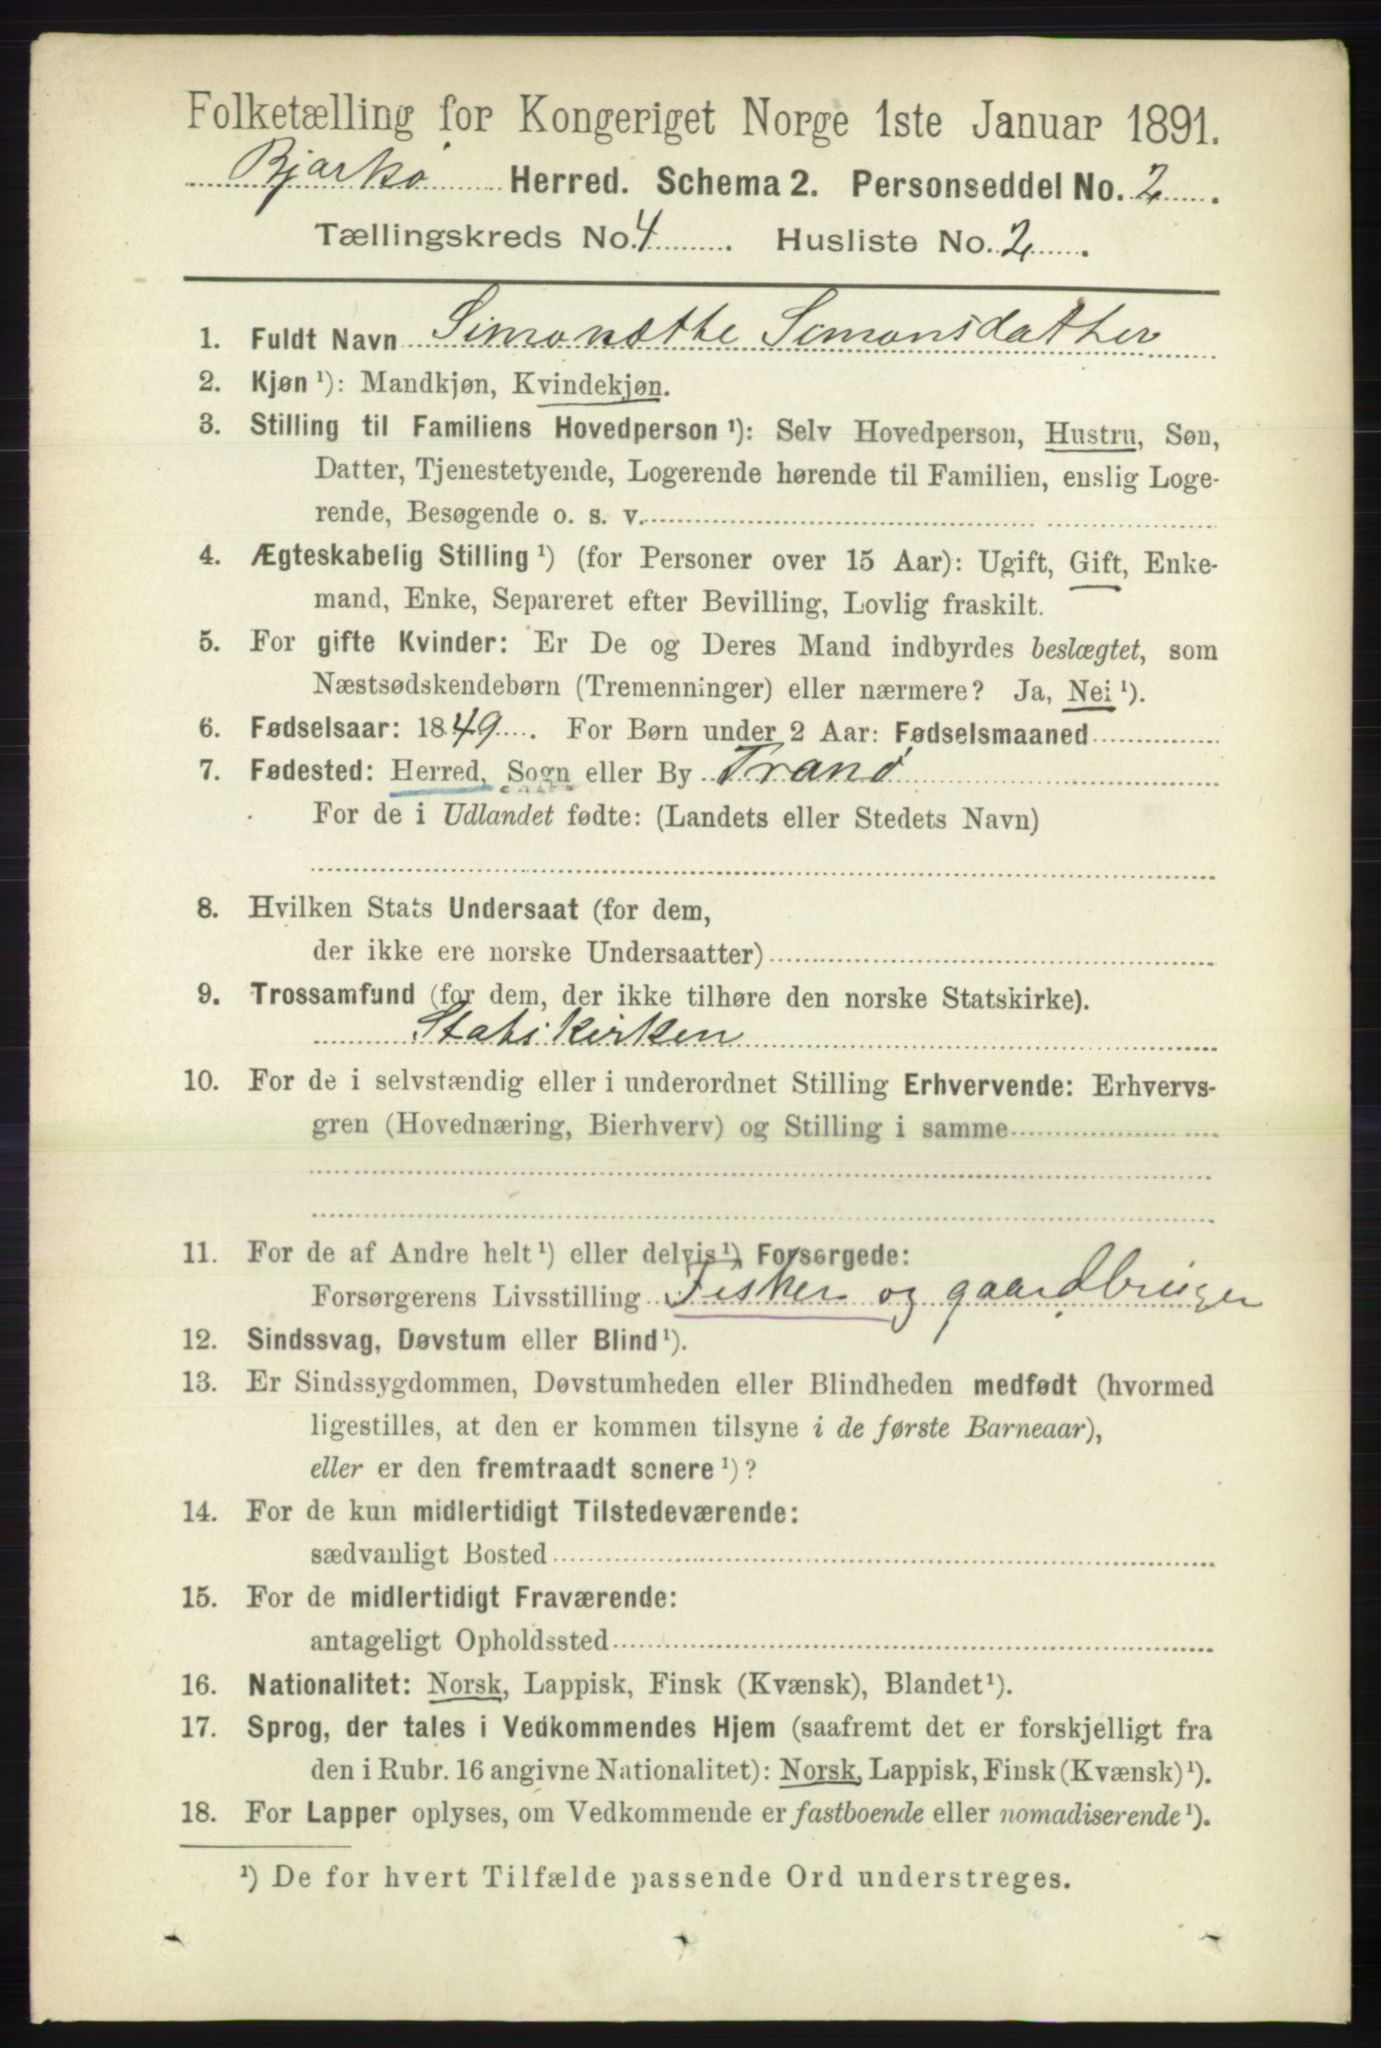 Folketælling for Kongeriget Norge 1ste Januar 1891.
Bjarkø Herred. Schema 2. Personseddel No. 2.
Tællingskreds No. 4. Husliste No. 2.
1. Fuldt Navn Simonette Simonsdatter
2. Kjøn ¹): Mandkjøn, Kvindekjøn.
3. Stilling til Familiens Hovedperson ¹): Selv Hovedperson, Hustru, Søn,
Datter, Tjenestetyende, Logerende hørende til Familien, enslig Loge-
rende, Besøgende o. s. v.
4. Ægteskabelig Stilling ¹) (for Personer over 15 Aar): Ugift, Gift, Enke-
mand, Enke, Separeret efter Bevilling, Lovlig fraskilt.
5. For gifte Kvinder: Er De og Deres Mand indbyrdes beslægtet, som
Næstsødskendebørn (Tremenninger) eller nærmere? Ja, Nei ¹).
6. Fødselsaar: 1849. For Børn under 2 Aar: Fødselsmaaned
7. Fødested: Herred, Sogn eller By Tranø
For de i Udlandet fødte: (Landets eller Stedets Navn)
8. Hvilken Stats Undersaat (for dem,
der ikke ere norske Undersaatter)
9. Trossamfund (for dem, der ikke tilhøre den norske Statskirke).
Statskirken
10. For de i selvstændig eller i underordnet Stilling Erhvervende: Erhvervs-
gren (Hovednæring, Bierhverv) og Stilling i samme
11. For de af Andre helt ¹) eller delvis ¹) Forsørgede:
Forsørgerens Livsstilling Fisker og gaardbruger
12. Sindssvag, Døvstum eller Blind ¹).
13. Er Sindssygdommen, Døvstumheden eller Blindheden medfødt (hvormed
ligestilles, at den er kommen tilsyne i de første Barneaar),
eller er den fremtraadt senere ¹)?
14. For de kun midlertidigt Tilstedeværende:
sædvanligt Bosted
15. For de midlertidigt Fraværende:
antageligt Opholdssted
16. Nationalitet: Norsk, Lappisk, Finsk (Kvænsk), Blandet ¹).
17. Sprog, der tales i Vedkommendes Hjem (saafremt det er forskjelligt fra
den i Rubr. 16 angivne Nationalitet): Norsk, Lappisk, Finsk (Kvænsk) ¹).
18. For Lapper oplyses, om Vedkommende er fastboende eller nomadiserende ¹).
¹) De for hvert Tilfælde passende Ord understreges.